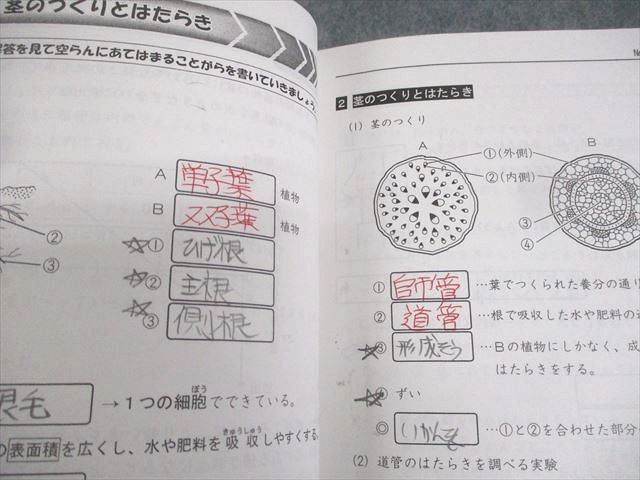 茎のつくりとはたらき
解答を見て空らんにあてはまることがらを書いていきましょう
A 単子葉 植物
B 双子葉 植物
☆① ひげ根
☆② 主根
☆③ 側根
②
③
根毛 →1つの細胞でできている。
ぼう
の表面積を広くし、水や肥料を吸収しやすくする
きゅうしゅう
No
2 茎のつくりとはたらき
(1) 茎のつくり
A
B
①(外側)
②(内側)
③
④
① 師管 …葉でつくられた養分の通り
② 道管 …根で吸収した水や肥料の通
☆③ 形成そう …Bの植物にしかなく、成
はたらきをする。
☆④ ずい
◎ いかんそく …①と②を合わせた部分
(2) 道管のはたらきを調べる実験